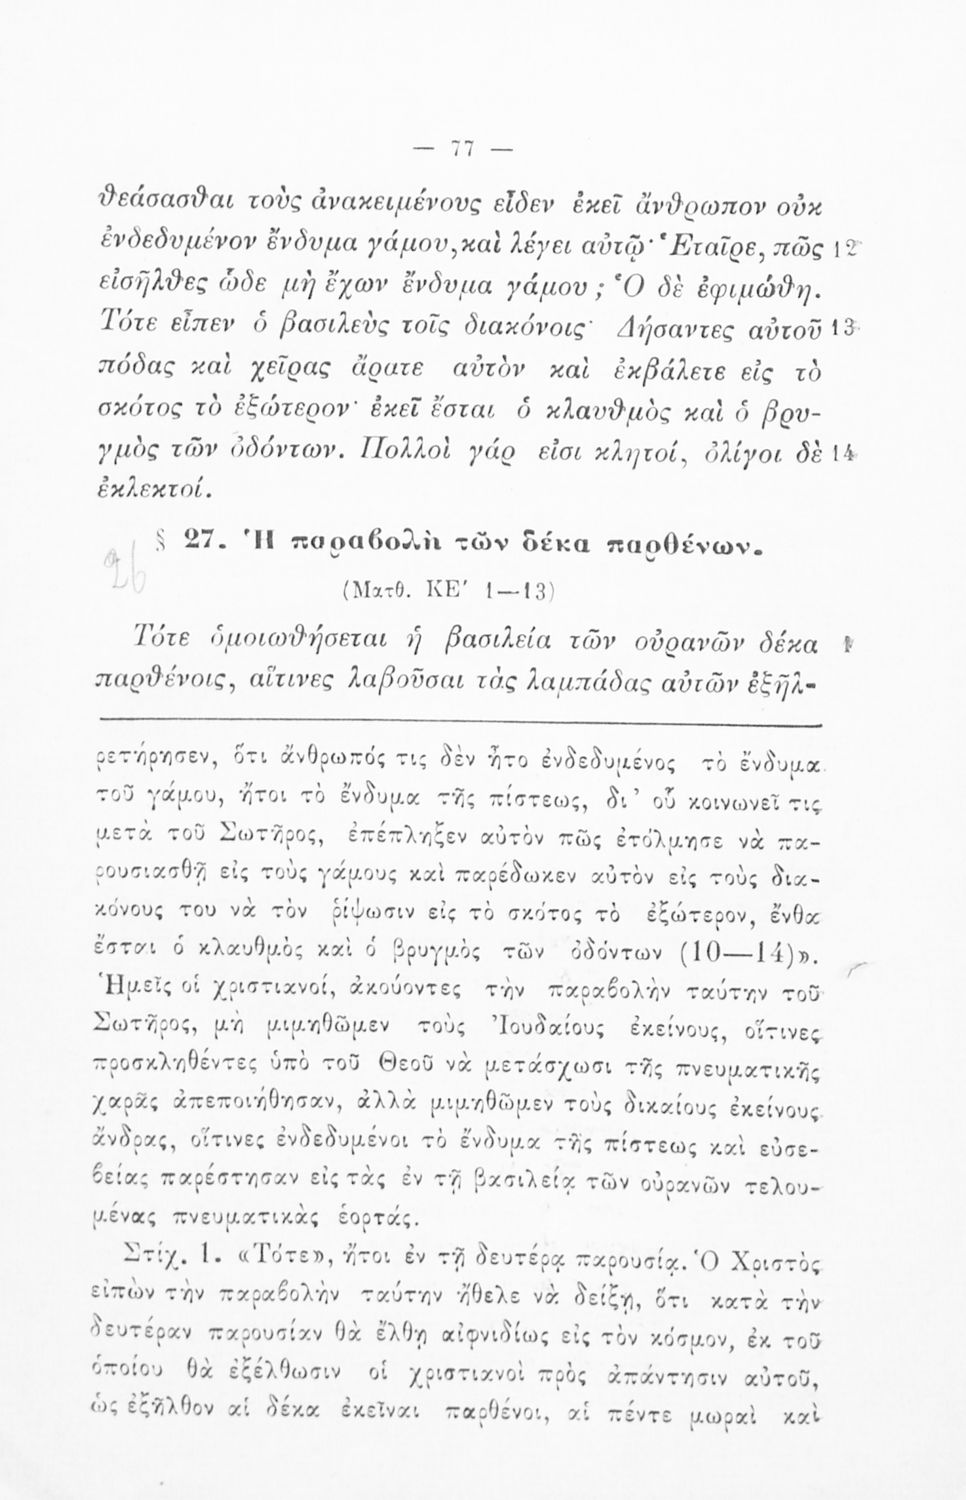 — 77 —
θεάσασθαι τοὺς ἀνακειμένους εἶδεν ἐκεῖ ἄνθρωπον οὐκ
ἐνδεδυμένον ἔνδυμα γάμου, καὶ λέγει αὐτῷ· Ἑταῖρε, πῶς 12
εἰσῆλθες ὧδε μὴ ἔχων ἔνδυμα γάμου; Ὁ δὲ ἐφιμώθη.
Τότε εἶπεν ὁ βασιλεὺς τοῖς διακόνοις· Δήσαντες αὐτοῦ 13
πόδας καὶ χεῖρας ἄρατε αὐτὸν καὶ ἐκβάλετε εἰς τὸ
σκότος τὸ ἐξώτερον· ἐκεῖ ἔσται ὁ κλαυθμὸς καὶ ὁ βρυ-
γμὸς τῶν ὀδόντων. Πολλοὶ γάρ εἰσι κλητοί, ὀλίγοι δὲ 14
ἐκλεκτοί.
§ 27. Ἡ παραβολὴ τῶν δέκα παρθένων.
26
(Ματθ. ΚΕ' 1—13)
Τότε ὁμοιωθήσεται ἡ βασιλεία τῶν οὐρανῶν δέκα 1
παρθένοις, αἵτινες λαβοῦσαι τὰς λαμπάδας αὐτῶν ἐξῆλ-
ρετήρησεν, ὅτι ἄνθρωπός τις δὲν ἦτο ἐνδεδυμένος τὸ ἔνδυμα
τοῦ γάμου, ἤτοι τὸ ἔνδυμα τῆς πίστεως, δι' οὗ κοινωνεῖ τις
μετὰ τοῦ Σωτῆρος, ἐπέπληξεν αὐτὸν πῶς ἐτόλμησε νὰ πα-
ρουσιασθῇ εἰς τοὺς γάμους καὶ παρέδωκεν αὐτὸν εἰς τοὺς δια-
κόνους του νὰ τὸν ῥίψωσιν εἰς τὸ σκότος τὸ ἐξώτερον, ἔνθα
ἔσται ὁ κλαυθμὸς καὶ ὁ βρυγμὸς τῶν ὀδόντων (10—14)».
Ἡμεῖς οἱ χριστιανοί, ἀκούοντες τὴν παραβολὴν ταύτην τοῦ
Σωτῆρος, μὴ μιμηθῶμεν τοὺς Ἰουδαίους ἐκείνους, οἵτινες
προσκληθέντες ὑπὸ τοῦ Θεοῦ νὰ μετάσχωσι τῆς πνευματικῆς
χαρᾶς ἀπεποιήθησαν, ἀλλὰ μιμηθῶμεν τοὺς δικαίους ἐκείνους
ἄνδρας, οἵτινες ἐνδεδυμένοι τὸ ἔνδυμα τῆς πίστεως καὶ εὐσε-
βείας παρέστησαν εἰς τὰς ἐν τῇ βασιλείᾳ τῶν οὐρανῶν τελου-
μένας πνευματικὰς ἑορτάς.
Στίχ. 1. «Τότε», ἤτοι ἐν τῇ δευτέρᾳ παρουσίᾳ. Ὁ Χριστὸς
εἰπὼν τὴν παραβολὴν ταύτην ἤθελε νὰ δείξῃ, ὅτι κατὰ τὴν
δευτέραν παρουσίαν θὰ ἔλθῃ αἰφνιδίως εἰς τὸν κόσμον, ἐκ τοῦ
ὁποίου θὰ ἐξέλθωσιν οἱ χριστιανοὶ πρὸς ἀπάντησιν αὐτοῦ,
ὡς ἐξῆλθον αἱ δέκα ἐκεῖναι παρθένοι, αἱ πέντε μωραὶ καὶ